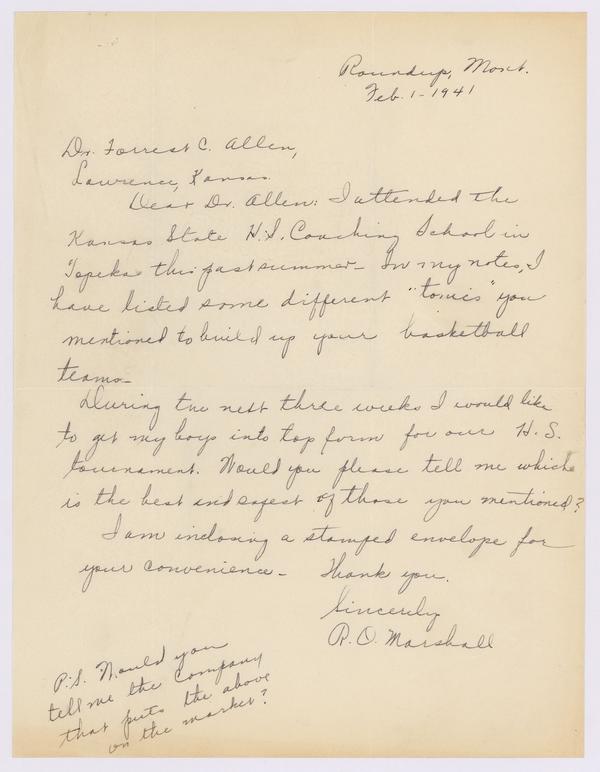 Roundup, Mont.
Feb. 1 - 1941
Dr. Forrest C. Allen,
Lawrence, Kansas.
Dear Dr. Allen: I attended the
Kansas State H.S. Coaching School in
Topeka this past summer - In my notes, I
have listed some different "tonics" you
mentioned to build up your basketball
teams -
During the next three weeks I would like
to get my boys into top form for our H. S.
tournament. Would you please tell me which
is the best and safest of those you mentioned?
I am inclosing a stamped envelope for
your convenience - Thank you.
Sincerely
R. O. Marshall
P.S. Would you
tell me the company
that puts the above
on the market?